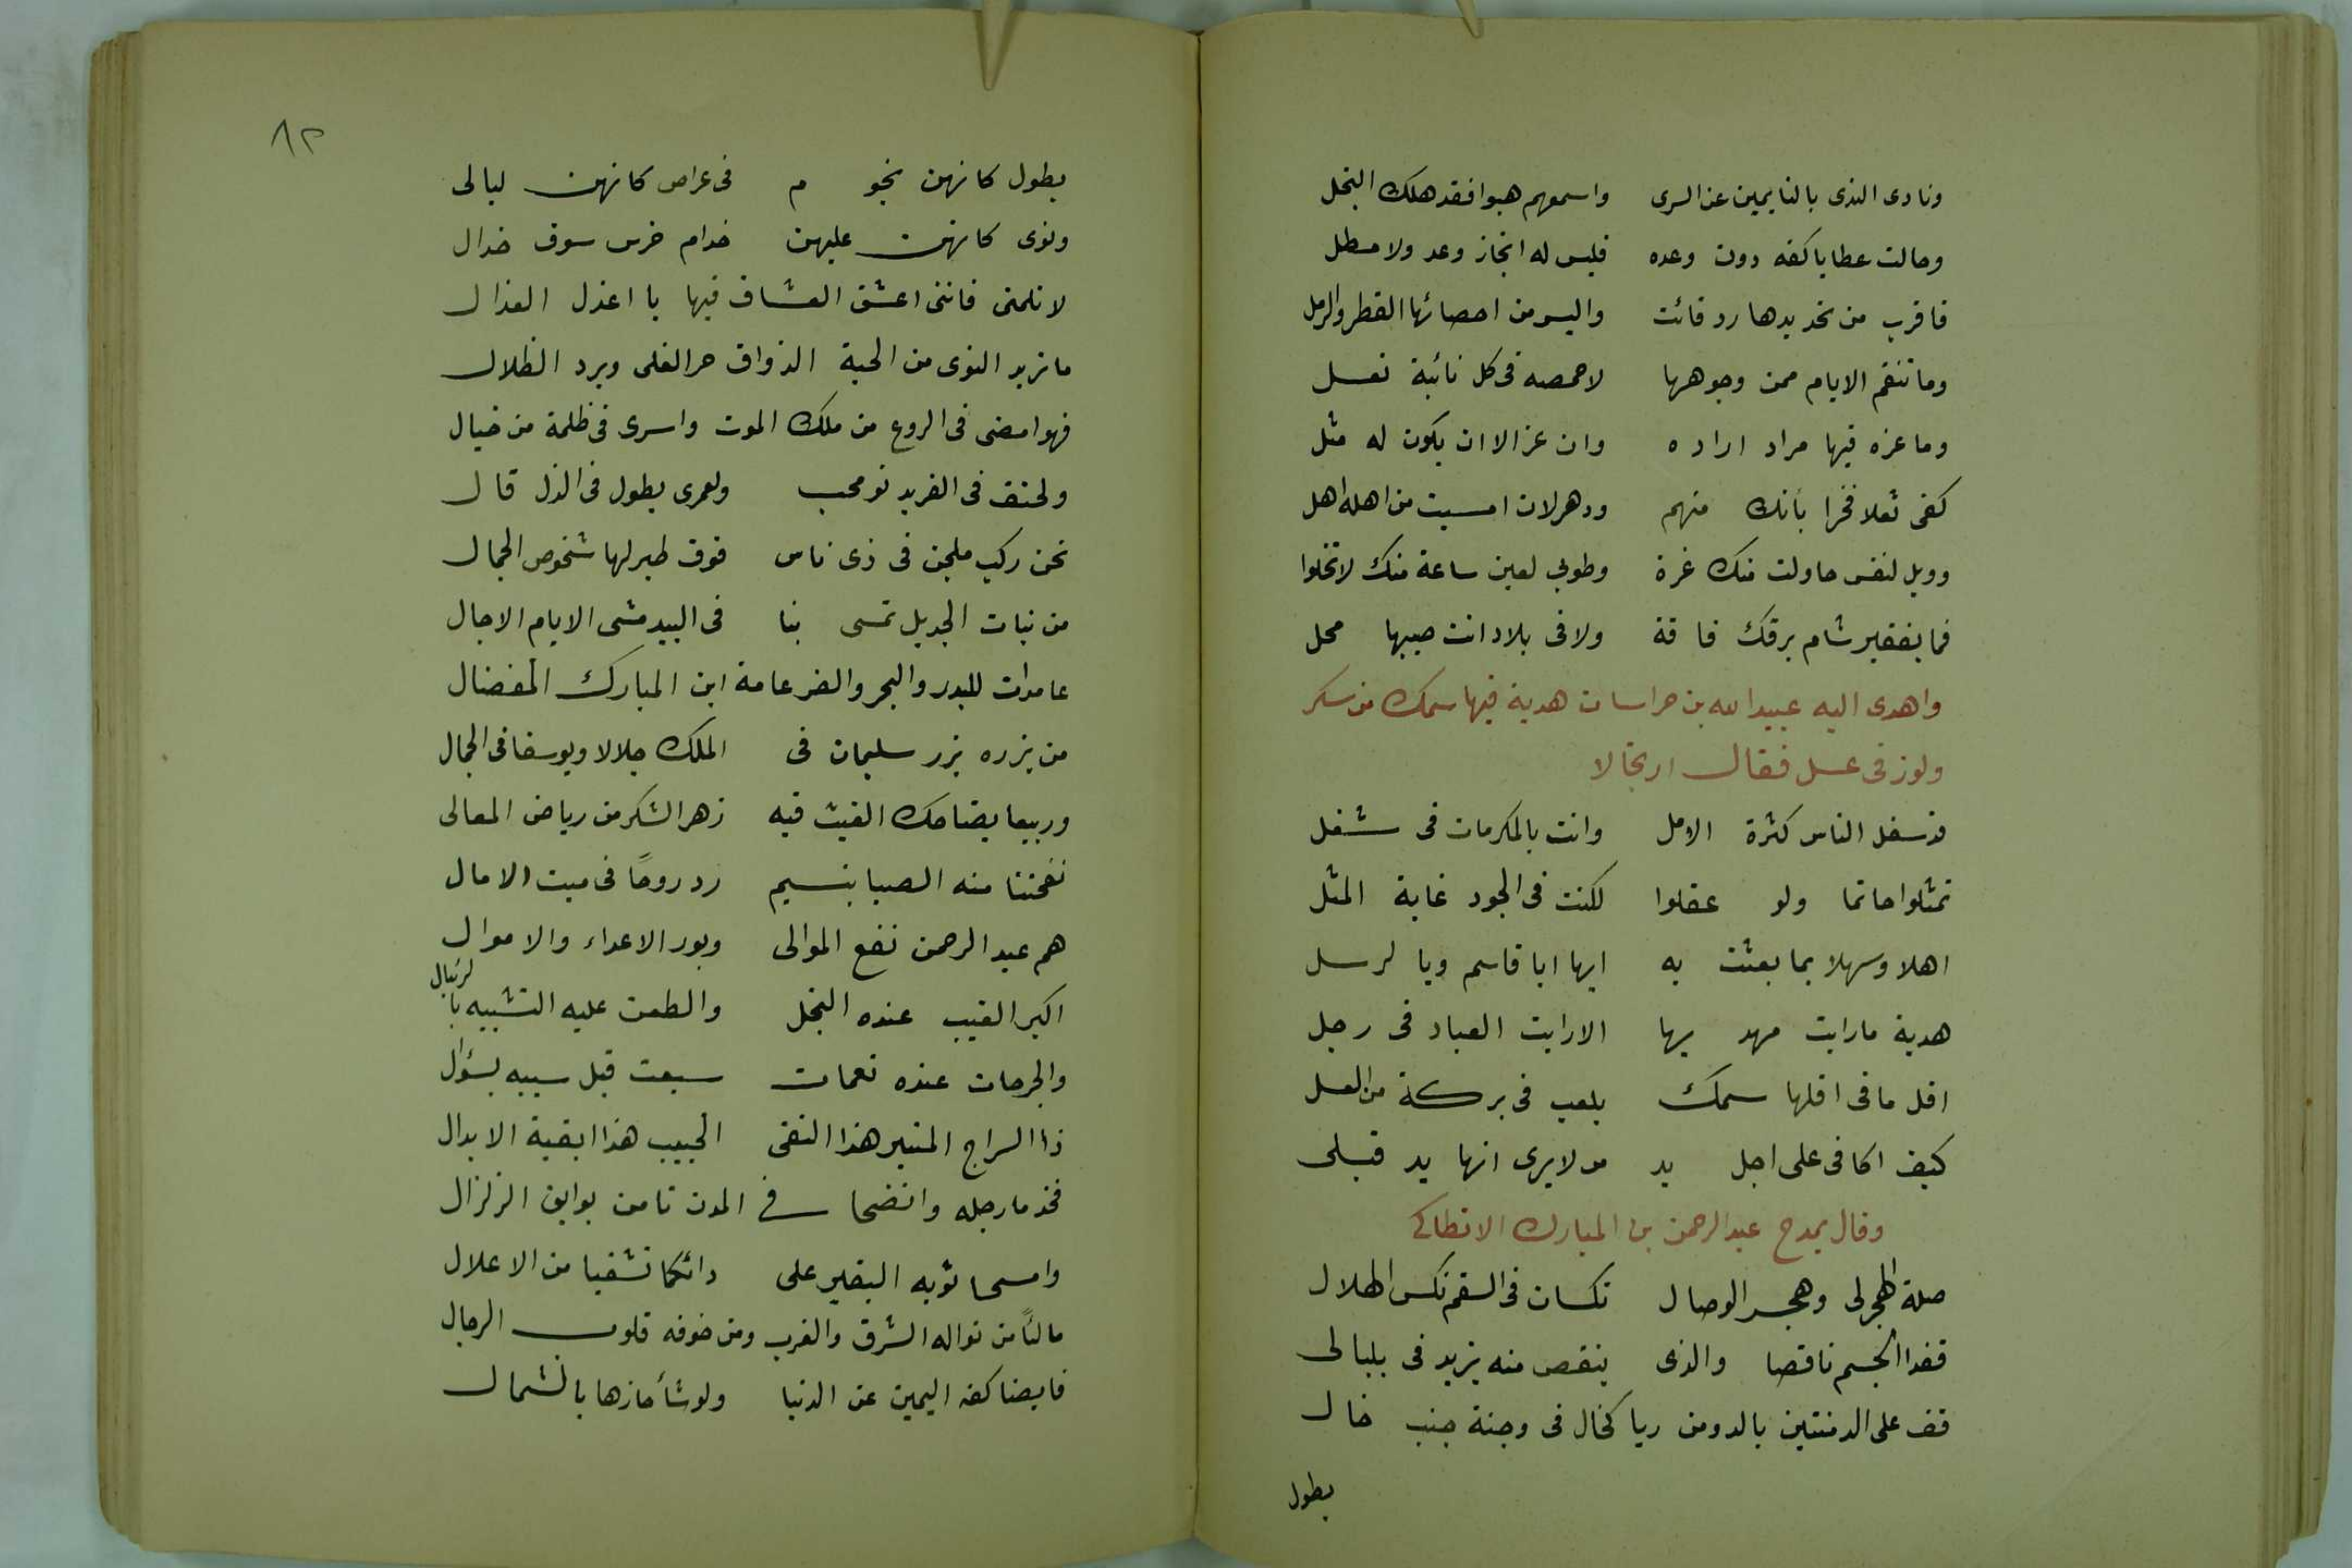 ونادى الندى بالنايمين عن السرى واسمعهم هبوا فقد هلك البخل
وحالت عطايا كفه دون وعده فليس له انجاز وعد ولا مطل
فاقرب من تحديدها رد فائت وايسر من احصائها القطر والرمل
وما تنقم الايام ممن وجوهها لاخمصه فى كل نائبة نعل
وما عزه فيها مراد اراده وان عز الا ان يكون له مثل
كفى ثعلا فخرا بأنك منهم ودهر لان امسيت من اهله اهل
وويل لنفس حاولت منك غرة وطوبى لعين ساعة منك لا تخلوا
فما بفقير شام برقك فاقة ولا فى بلاد انت صيبها محل
واهدى اليه عبيد الله بن خراسان هدية فيها سمك من سكر
ولوز فى عسل فقال ارتجالا
قد شغل الناس كثرة الامل وانت بالمكرمات فى شغل
تمثلوا حاتما ولو عقلوا لكنت فى الجود غاية المثل
اهلا وسهلا بما بعثت به ايها ابا قاسم وبا لرسل
هدية ما رايت مهديها الا رايت العباد فى رجل
اقل ما فى اقلها سمك يلعب فى بركة من العسل
كيف اكافى على اجل يد من لا يرى انها يد قبلى
وقال يمدح عبد الرحمن بن المبارك الانطاكى
صلة الهجر لى وهجر الوصال نكسان فى السقم نكس الهلال
فغدا الجسم ناقصا والذى ينقص منه يزيد فى بلبالى
قف على الدمنتين بالدو من ريا كخال فى وجنة جنب خال
بطول
٨٢
بطول كانهن نجو م فى عراص كانهن ليالى
ونوى كانهن عليهن خدام خرس بسوق خدال
لا تلمنى فاننى اعشق العشاق فيها يا اعذل العذال
ما تريد النوى من الحية الذواق حر الفلى وبرد الظلال
فهو امضى فى الروع من ملك الموت واسرى فى ظلمة من خيال
ولحتف فى العز يدنو محب ولعمر يطول فى الذل قال
نحن ركب ملجن فى زى ناس فوق طير لها شخوص الجمال
من بنات الجديل تمشى بنا فى البيد مشى الايام الاجال
عامدات للبدر والبحر والضرغامة ابن المبارك المفضال
من يزره يزر سليمان فى الملك جلالا ويوسفا فى الجمال
وربيعا يضاحك الغيث فيه زهر الشكر من رياض المعالى
نفحتنا منه الصبا بنسيم رد روحًا فى ميت الامال
هم عبد الرحمن نفع الموالى وبور الاعداء والاموال
اكبر العيب عنده البخل والطعن عليه التشبيه بالرئبال
والجرحات عنده نغمات سبقت قبل سيبه بسؤال
ذا السراج المنير هذا النقى الجيب هذا بقية الابدال
فخذ ما رجله وانضحا فى المدن تامن بوايق الزلزال
وامسحا ثوبه البقير على دائكما تشفيا من الاعلال
مالئًا من نواله الشرق والغرب ومن خوفه قلوب الرجال
قابضا كفه اليمين عن الدنيا ولو شأ حازها بالشمال